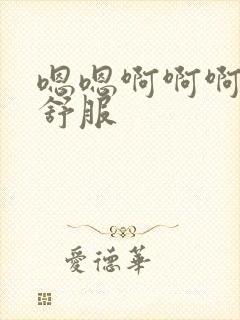 嗯嗯啊啊啊
舒服
愛德華